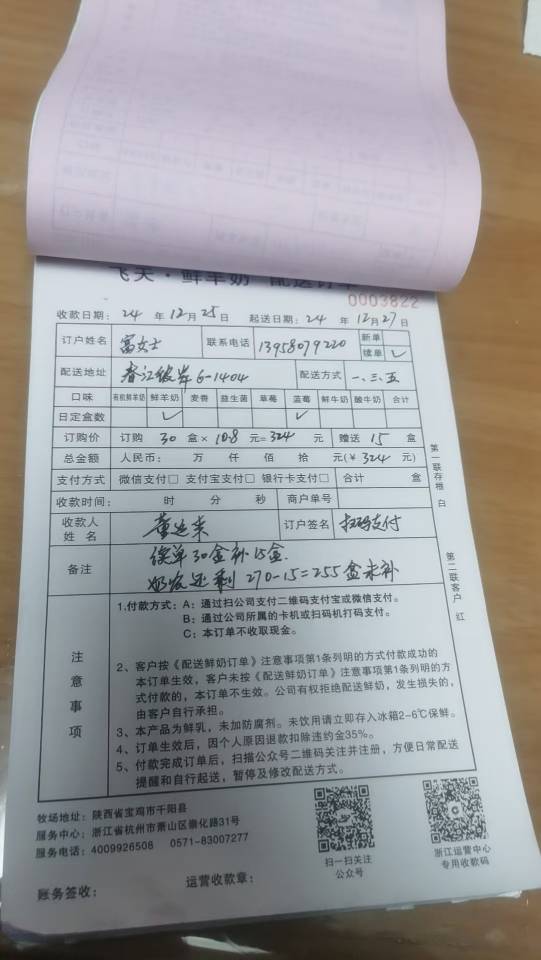 飞天·鲜羊奶 配送订单
0003822
收款日期：24 年 12 月 25 日 起送日期：24 年 12 月 27 日
订户姓名 富女士 联系电话 13958079220 新单
续单 ✓
配送地址 春江彼岸 6-1404 配送方式 一、三、五
口味 有机鲜羊奶 鲜羊奶 麦香 益生菌 草莓 蓝莓 鲜牛奶 酸牛奶 合计
日定盒数 ✓ ✓
订购价 订购 30 盒 × 10.8 元 = 324 元 赠送 15 盒
总金额 人民币： 万 仟 佰 拾 元(￥ 324 元)
支付方式 微信支付□ 支付宝支付□ 银行卡支付□ 合计 盒
收款时间： 时 分 秒 商户单号
收款人
姓 名 订户签名 扫码支付
备注 续单30盒补15盒.
奶农还剩 270-15=255 盒未补
第一联存根 白
第二联客户 红
注意事项
1.付款方式：A：通过扫公司支付二维码支付宝或微信支付。
B：通过公司所属的卡机或扫码机打码支付。
C：本订单不收取现金。
2、客户按《配送鲜奶订单》注意事项第1条列明的方式付款成功的
本订单生效，客户未按《配送鲜奶订单》注意事项第1条列明的方
式付款的，本订单不生效。公司有权拒绝配送鲜奶，发生损失的，
由客户自行承担。
3、本产品为鲜乳，未加防腐剂。未饮用请立即存入冰箱2-6℃保鲜。
4、订单生效后，因个人原因退款扣除违约金35%。
5、付款完成订单后，扫描公众号二维码关注并注册，方便日常配送
提醒和自行起送，暂停及修改配送方式。
牧场地址：陕西省宝鸡市千阳县
服务中心：浙江省杭州市萧山区崇化路31号
服务电话：4009926508 0571-83007277
扫一扫关注
公众号
浙江运营中心
专用收款码
账务签收： 运营收款章：